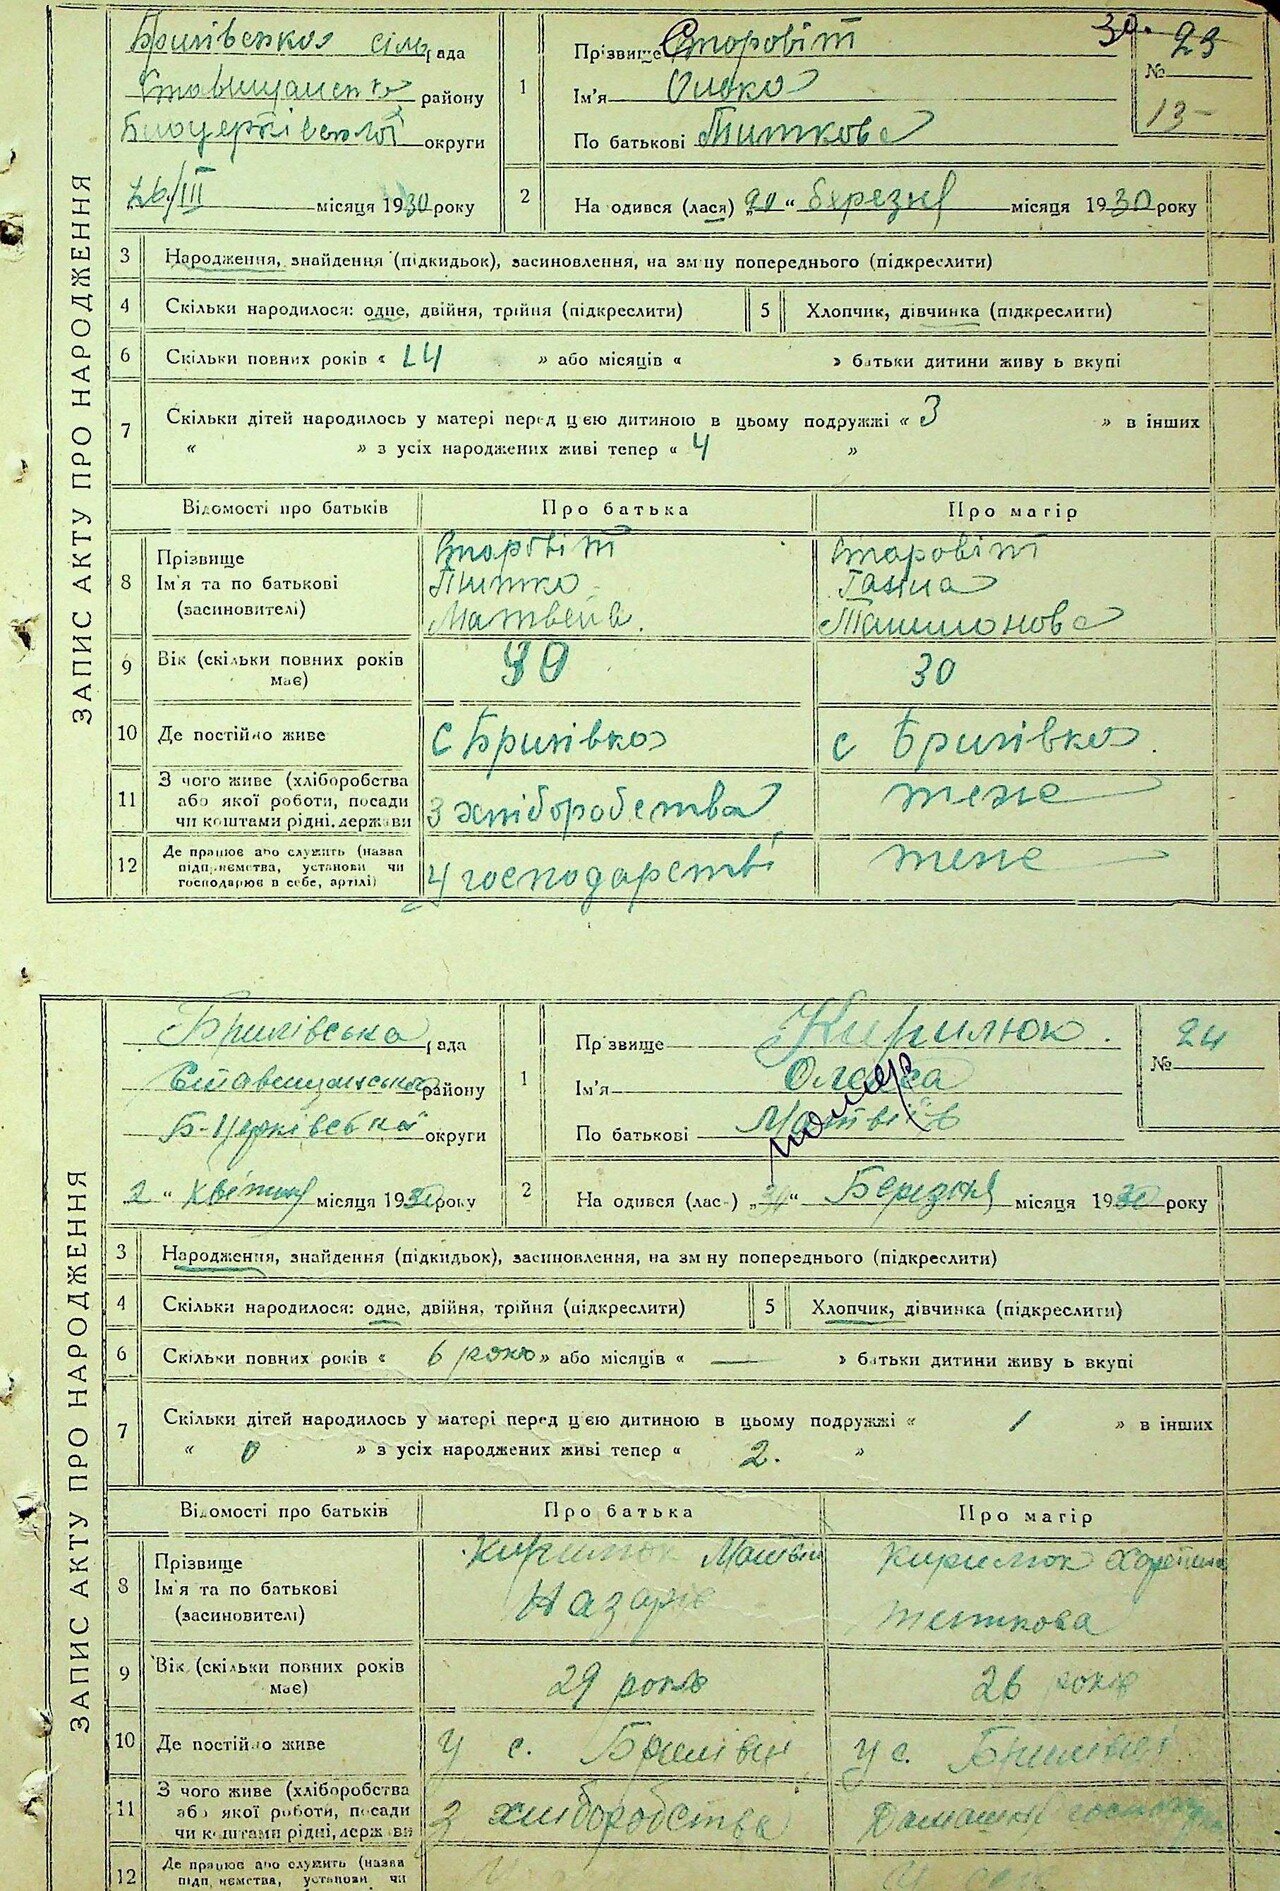 ЗАПИС АКТУ ПРО НАРОДЖЕННЯ
Брилівська сіль рада
району
Білоцерківської округи
26/III місяця 1930 року
1 Прізвище Старовіт
Ім'я Олека
По батькові Титкова
30. № 23
13-
2 На одився (лася) „20“ березня місяця 1930 року
3 Народження, знайдення (підкидьок), засиновлення, на зм ну попереднього (підкреслити)
4 Скільки народилося: одне, двійня, трійня (підкреслити) 5 Хлопчик, дівчинка (підкреслити)
6 Скільки повних років « 14 » або місяців « » батьки дитини живу ь вкупі
7 Скільки дітей народилось у матері перед цією дитиною в цьому подружжі « 3 » в інших
« » з усіх народжених живі тепер « 4 »
Відомості про батьків Про батька Про матір
8 Прізвище Ім'я та по батькові (засиновителі)
Старовіт Титко Матвеів.
Старовіт Ганна
9 Вік (скільки повних років має) 30
10 Де постійно живе с Брилівка с Брилівка.
11 З чого живе (хліборобства або якої роботи, посади чи коштами рідні, держави
З хліборобства теж
12 Де працює або служить (назва підприємства, установи чи господарює в себе, артілі)
У господарстві теж
ЗАПИС АКТУ ПРО НАРОДЖЕННЯ
Брилівська рада
Ставищанського району
Б-Церківської округи
2 “ Квітня місяця 1930 року
1 Прізвище Кирилюк.
Ім'я Олекса
По батькові Матвіїв
помер
№ 24
2 На одився (лас-) „30“ Березня місяця 1930 року
3 Народження, знайдення (підкидьок), засиновлення, на зм ну попереднього (підкреслити)
4 Скільки народилося: одне, двійня, трійня (підкреслити) 5 Хлопчик, дівчинка (підкреслити)
6 Скільки повних років « 6 років » або місяців « — » батьки дитини живу ь вкупі
7 Скільки дітей народилось у матері перед цією дитиною в цьому подружжі « 1 » в інших
« 0 » з усіх народжених живі тепер « 2. »
Відомості про батьків Про батька Про матір
8 Прізвище Ім'я та по батькові (засиновителі)
Кирилюк Матвій Назарів
Кирилюк Титкова
9 Вік (скільки повних років має) 29 років 26 років
10 Де постійно живе У с. Брилівці У с. Брилівці
11 З чого живе (хліборобства або якої роботи, посади чи коштами рідні, держави
З хліборобства
12 Де працює або служить (назва підприємства, установи чи